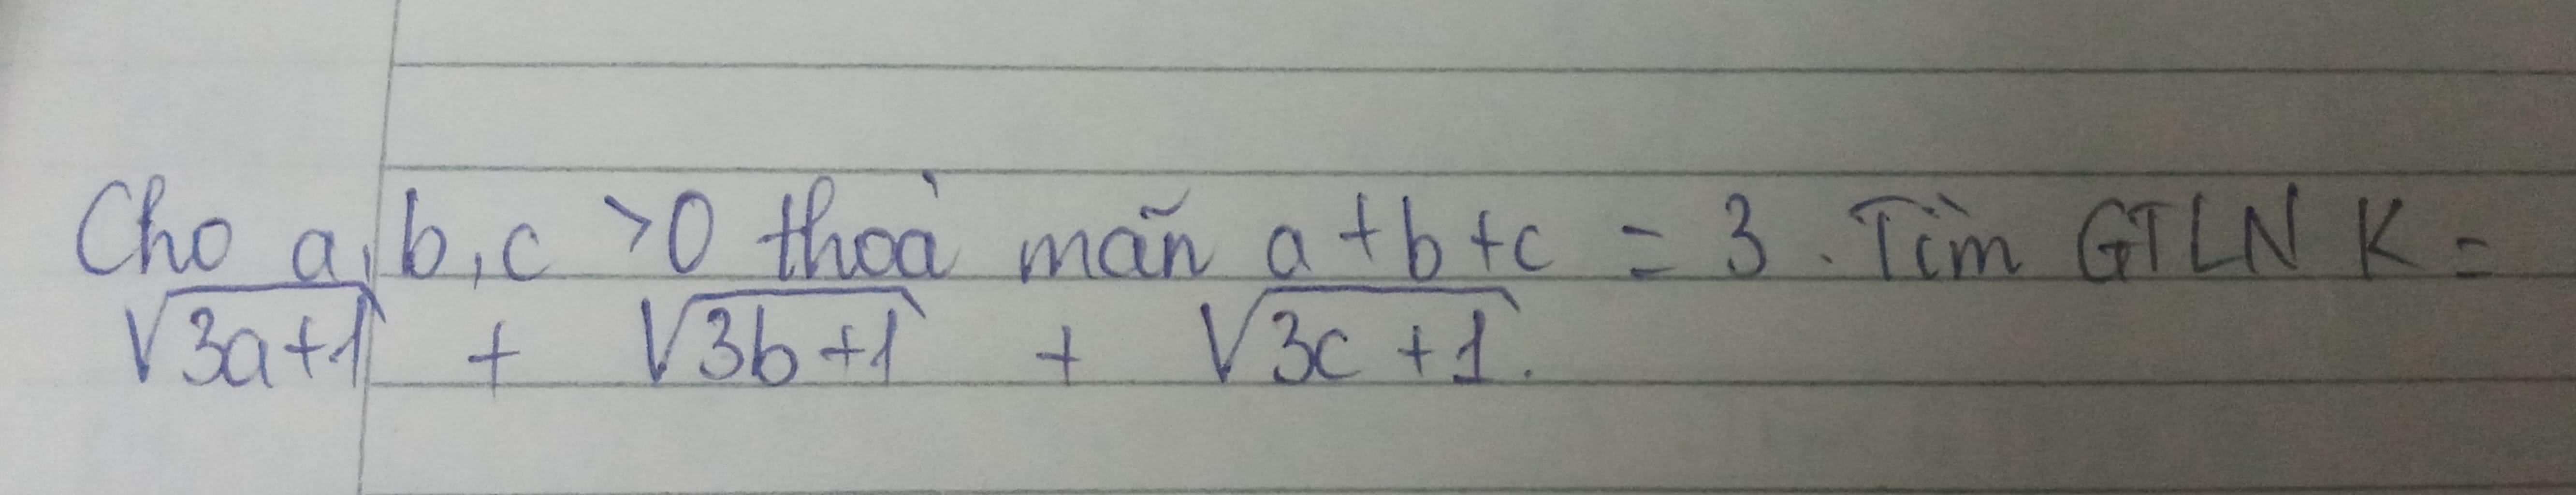 Cho a, b, c >0 thoả mãn a+b+c = 3. Tìm GTLN K =
√(3a+1) + √(3b+1) + √(3c+1).